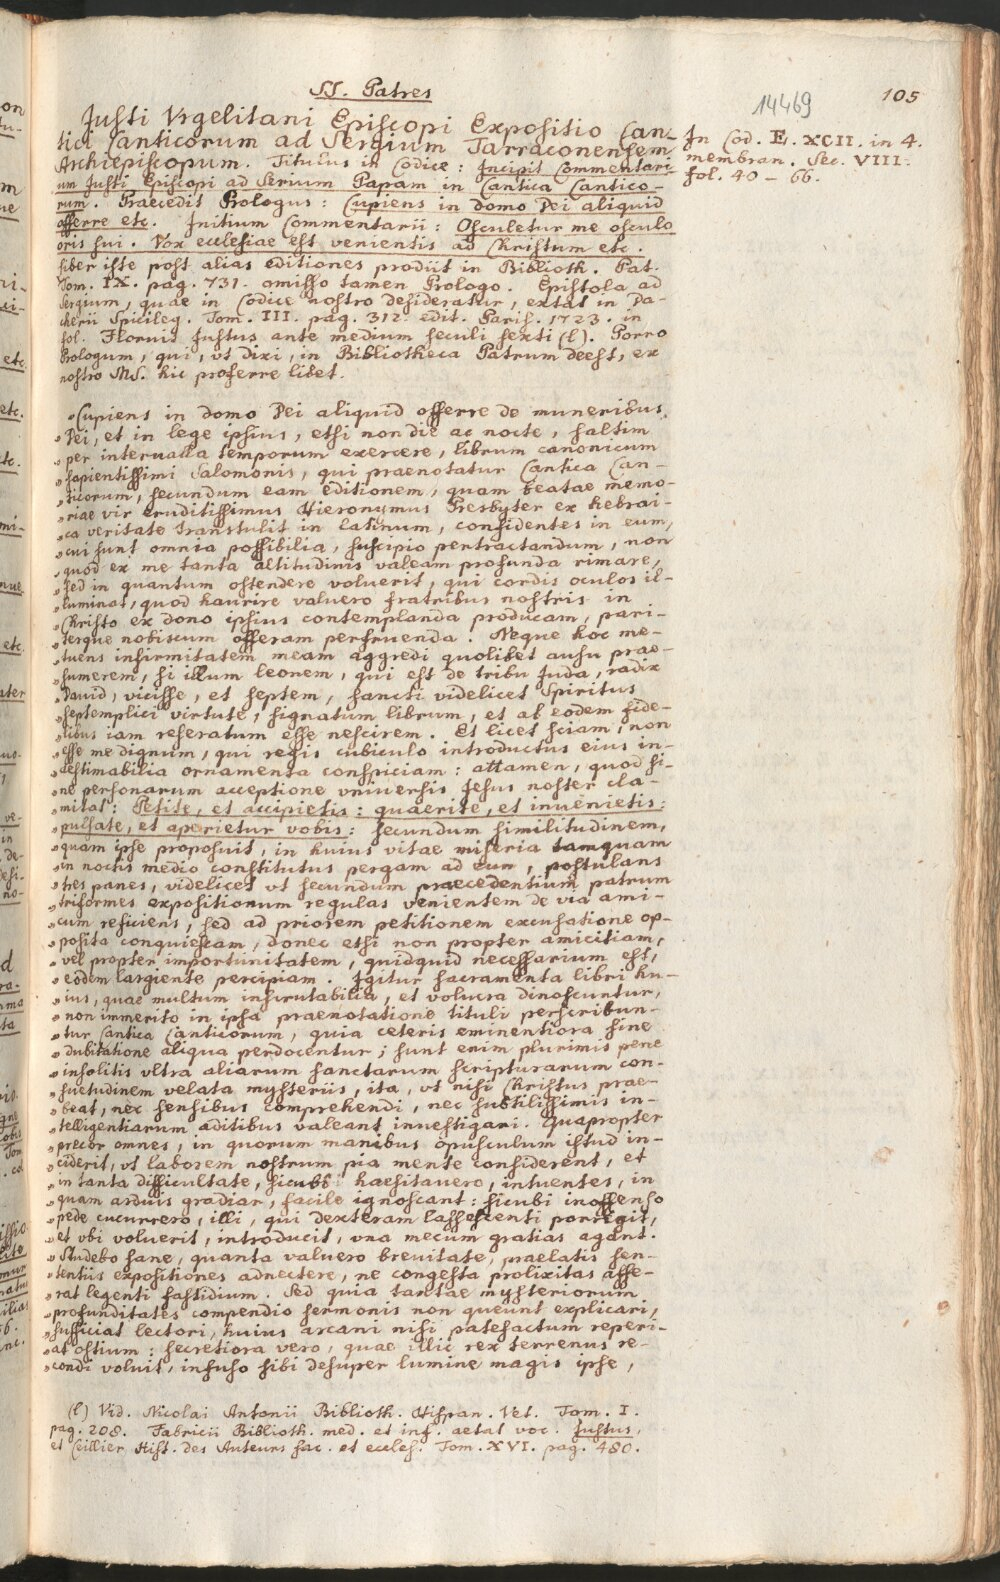 SS. Patres
14469
105
Justi Vrgelitani Episcopi Expositio Can-
tici Canticorum ad Sergium Tarraconensem
Archiepiscopum. Titulus in Codice: Incipit Commentari-
um Justi Episcopi ad Serium Papam in Cantica Cantico-
rum. Praecedit Prologus: Cupiens in domo Dei aliquid
offerre etc. Initium Commentarii: Osculetur me osculo
oris sui. Vox ecclesiae est venientis ad Christum etc.
Liber iste post alias editiones prodiit in Biblioth. Pat.
Tom. IX. pag. 731. amisso tamen Prologo. Epistola ad
Sergium, quae in Codice nostro desideratur, extat in Da-
cherii Spicileg. Tom. III. pag. 312. edit. Paris. 1723. in
fol. Floruit Justus ante medium seculi sexti (l). Porro
Prologum, qui, vt dixi, in Bibliotheca Patrum deest, ex
nostro MS. hic proferre libet.
In Cod. E. XCII. in 4.
membran. Sec. VIII.
fol. 40 – 66.
„Cupiens in domo Dei aliquid offerre de muneribus
„Dei, et in lege ipsius, etsi non die ac nocte, saltim
„per interualla temporum exercere, librum canonicum
„sapientissimi Salomonis, qui praenotatur Cantica Can-
„ticorum, secundum eam editionem, quam beatae memo-
„riae vir eruditissimus Hieronymus Presbyter ex hebrai-
„ca veritate transtulit in latinum, confidentes in eum,
„cui sunt omnia possibilia, suscipio pertractandum, non
„quod ex me tanta altitudinis valeam profunda rimare,
„sed in quantum ostendere voluerit, qui cordis oculos il-
„luminat, quod haurire valuero fratribus nostris in
„Christo ex dono ipsius contemplanda producam, pari-
„terque nobiscum offeram perfruenda. Neque hoc me-
„tuens infirmitatem meam aggredi quolibet ausu prae-
„sumerem, si illum leonem, qui est de tribu Juda, radix
„Dauid, vicisse, et septem, sancti videlicet Spiritus
„septemplici virtute, signatum librum, et ab eodem fide-
„libus iam reseratum esse nescirem. Et licet sciam, non
„esse me dignum, qui regis cubiculo introductus eius in-
„aestimabilia ornamenta conspiciam: attamen, quod si-
„ne personarum acceptione vniuersis Jesus noster cla-
„mitat: Petite, et accipietis: quaerite, et inuenietis:
„pulsate, et aperietur vobis: secundum similitudinem,
„quam ipse proposuit, in huius vitae miseria tamquam
„in noctis medio constitutus pergam ad eum, postulans
„tres panes, videlicet vt secundum praecedentium patrum
„triformes expositionum regulas venientem de via ami-
„cum reficiens, sed ad priorem petitionem excusatione op-
„posita conquiescam, donec etsi non propter amicitiam,
„vel propter importunitatem, quidquid necessarium est,
„eodem largiente percipiam. Igitur sacramenta libri hu-
„ius, quae multum inscrutabilia, et volucra dinoscuntur,
„non immerito in ipsa praenotatione tituli perscribun-
„tur Cantica Canticorum, quia ceteris eminentiora sine
„dubitatione aliqua perdocentur; sunt enim plurimis pene
„insolitis vltra aliarum sanctarum scripturarum con-
„suetudinem velata mysteriis, ita, vt nisi Christus prae-
„beat, nec sensibus comprehendi, nec subtilissimis in-
„telligentiarum aditibus valeant inuestigari. Quapropter
„precor omnes, in quorum manibus opusculum istud in-
„ciderit, vt laborem nostrum pia mente considerent, et
„in tanta difficultate, sicubi haesitauero, intuentes, in
„quam arduis gradiar, facile ignoscant: sicubi inoffenso
„pede cucurrero, illi, qui dexteram lassescenti porrigit,
„et vbi voluerit, introducit, vna mecum gratias agant.
„Studebo sane, quanta valuero breuitate, praelatis sen-
„tentiis expositiones adnectere, ne congesta prolixitas affe-
„rat legenti fastidium. Sed quia tantae mysteriorum
„profunditates compendio sermonis non queunt explicari,
„sufficiat lectori, huius arcani nisi patefactum reperi-
„at ostium: secretiora vero, quae illic rex terrenus re-
„condi voluit, infuso sibi desuper lumine magis ipse,
(l) Vid. Nicolai Antonii Biblioth. Hispan. Vet. Tom. I.
pag. 208. Fabricii Biblioth. med. et inf. aetat voc. Justus,
et Ceillier Hist. des Auteurs sac. et eccles. Tom. XVI. pag. 480.